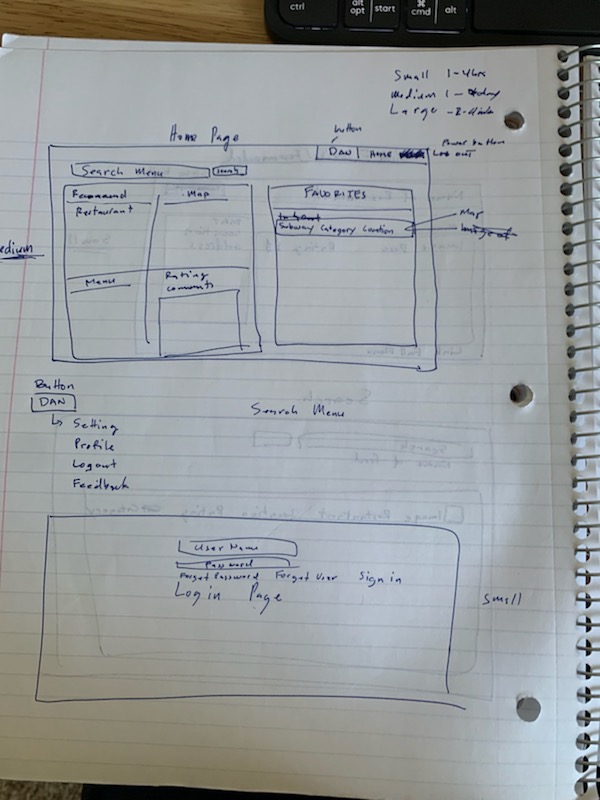 ctrl
alt
opt
start
⌘
cmd
alt
Small 1-4hrs
Medium 1 - day
Large -
Home Page
button
Power button
DAN
HOME
Log out
Search Menu
Search
Recommend
Restaurant
Map
FAVORITES
Subway Category Location
Map
Medium
Menu
Rating
comments
Button
DAN
Setting
Profile
Logout
Feedback
Search Menu
User Name
Password
Forgot Password Forgot User Sign in
Login Page
Small